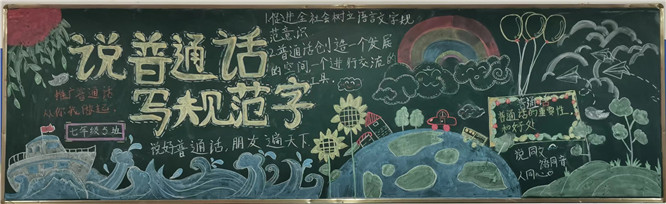 说普通话
写规范字
推广普通话
从你我做起
七年级5班
说好普通话,朋友遍天下
1.促进全社会树立语言文字规
范意识
2.普通话创造一个发展
的空间一个进行交流的
工具.
普通话的重要性
和好处
说同文
语同音
人同心